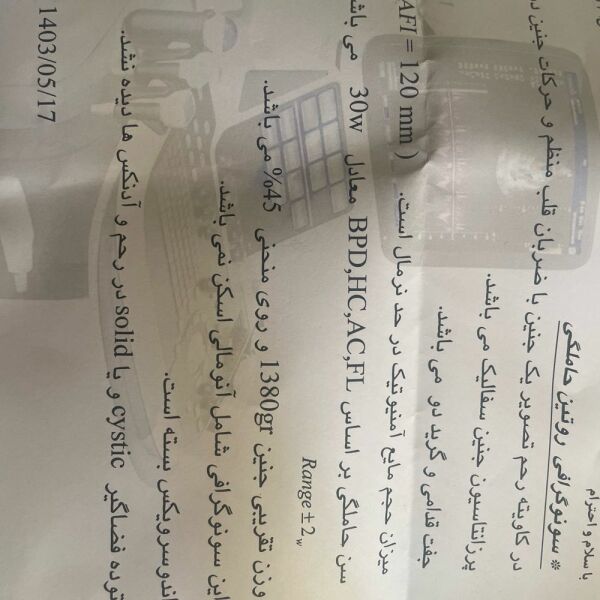 با سلام و احترام
* سونوگرافی روتین حاملگی
در کاویته رحم تصویر یک جنین با ضربان قلب منظم و حرکات جنین
پرزانتاسیون جنین سفالیک می باشد.
جفت قدامی و گرید دو می باشد.
میزان حجم مایع آمنیوتیک در حد نرمال است. ( AFI = 120 mm
سن حاملگی بر اساس BPD,HC,AC,FL معادل 30w می باشد
Range ± 2w
وزن تقریبی جنین 1380gr و روی منحنی 45% می باشد.
این سونوگرافی شامل آنومالی اسکن نمی باشد.
اندوسرویکس بسته است.
توده فضاگیر cystic و یا solid در رحم و آدنکس ها دیده نشد.
1403/05/17